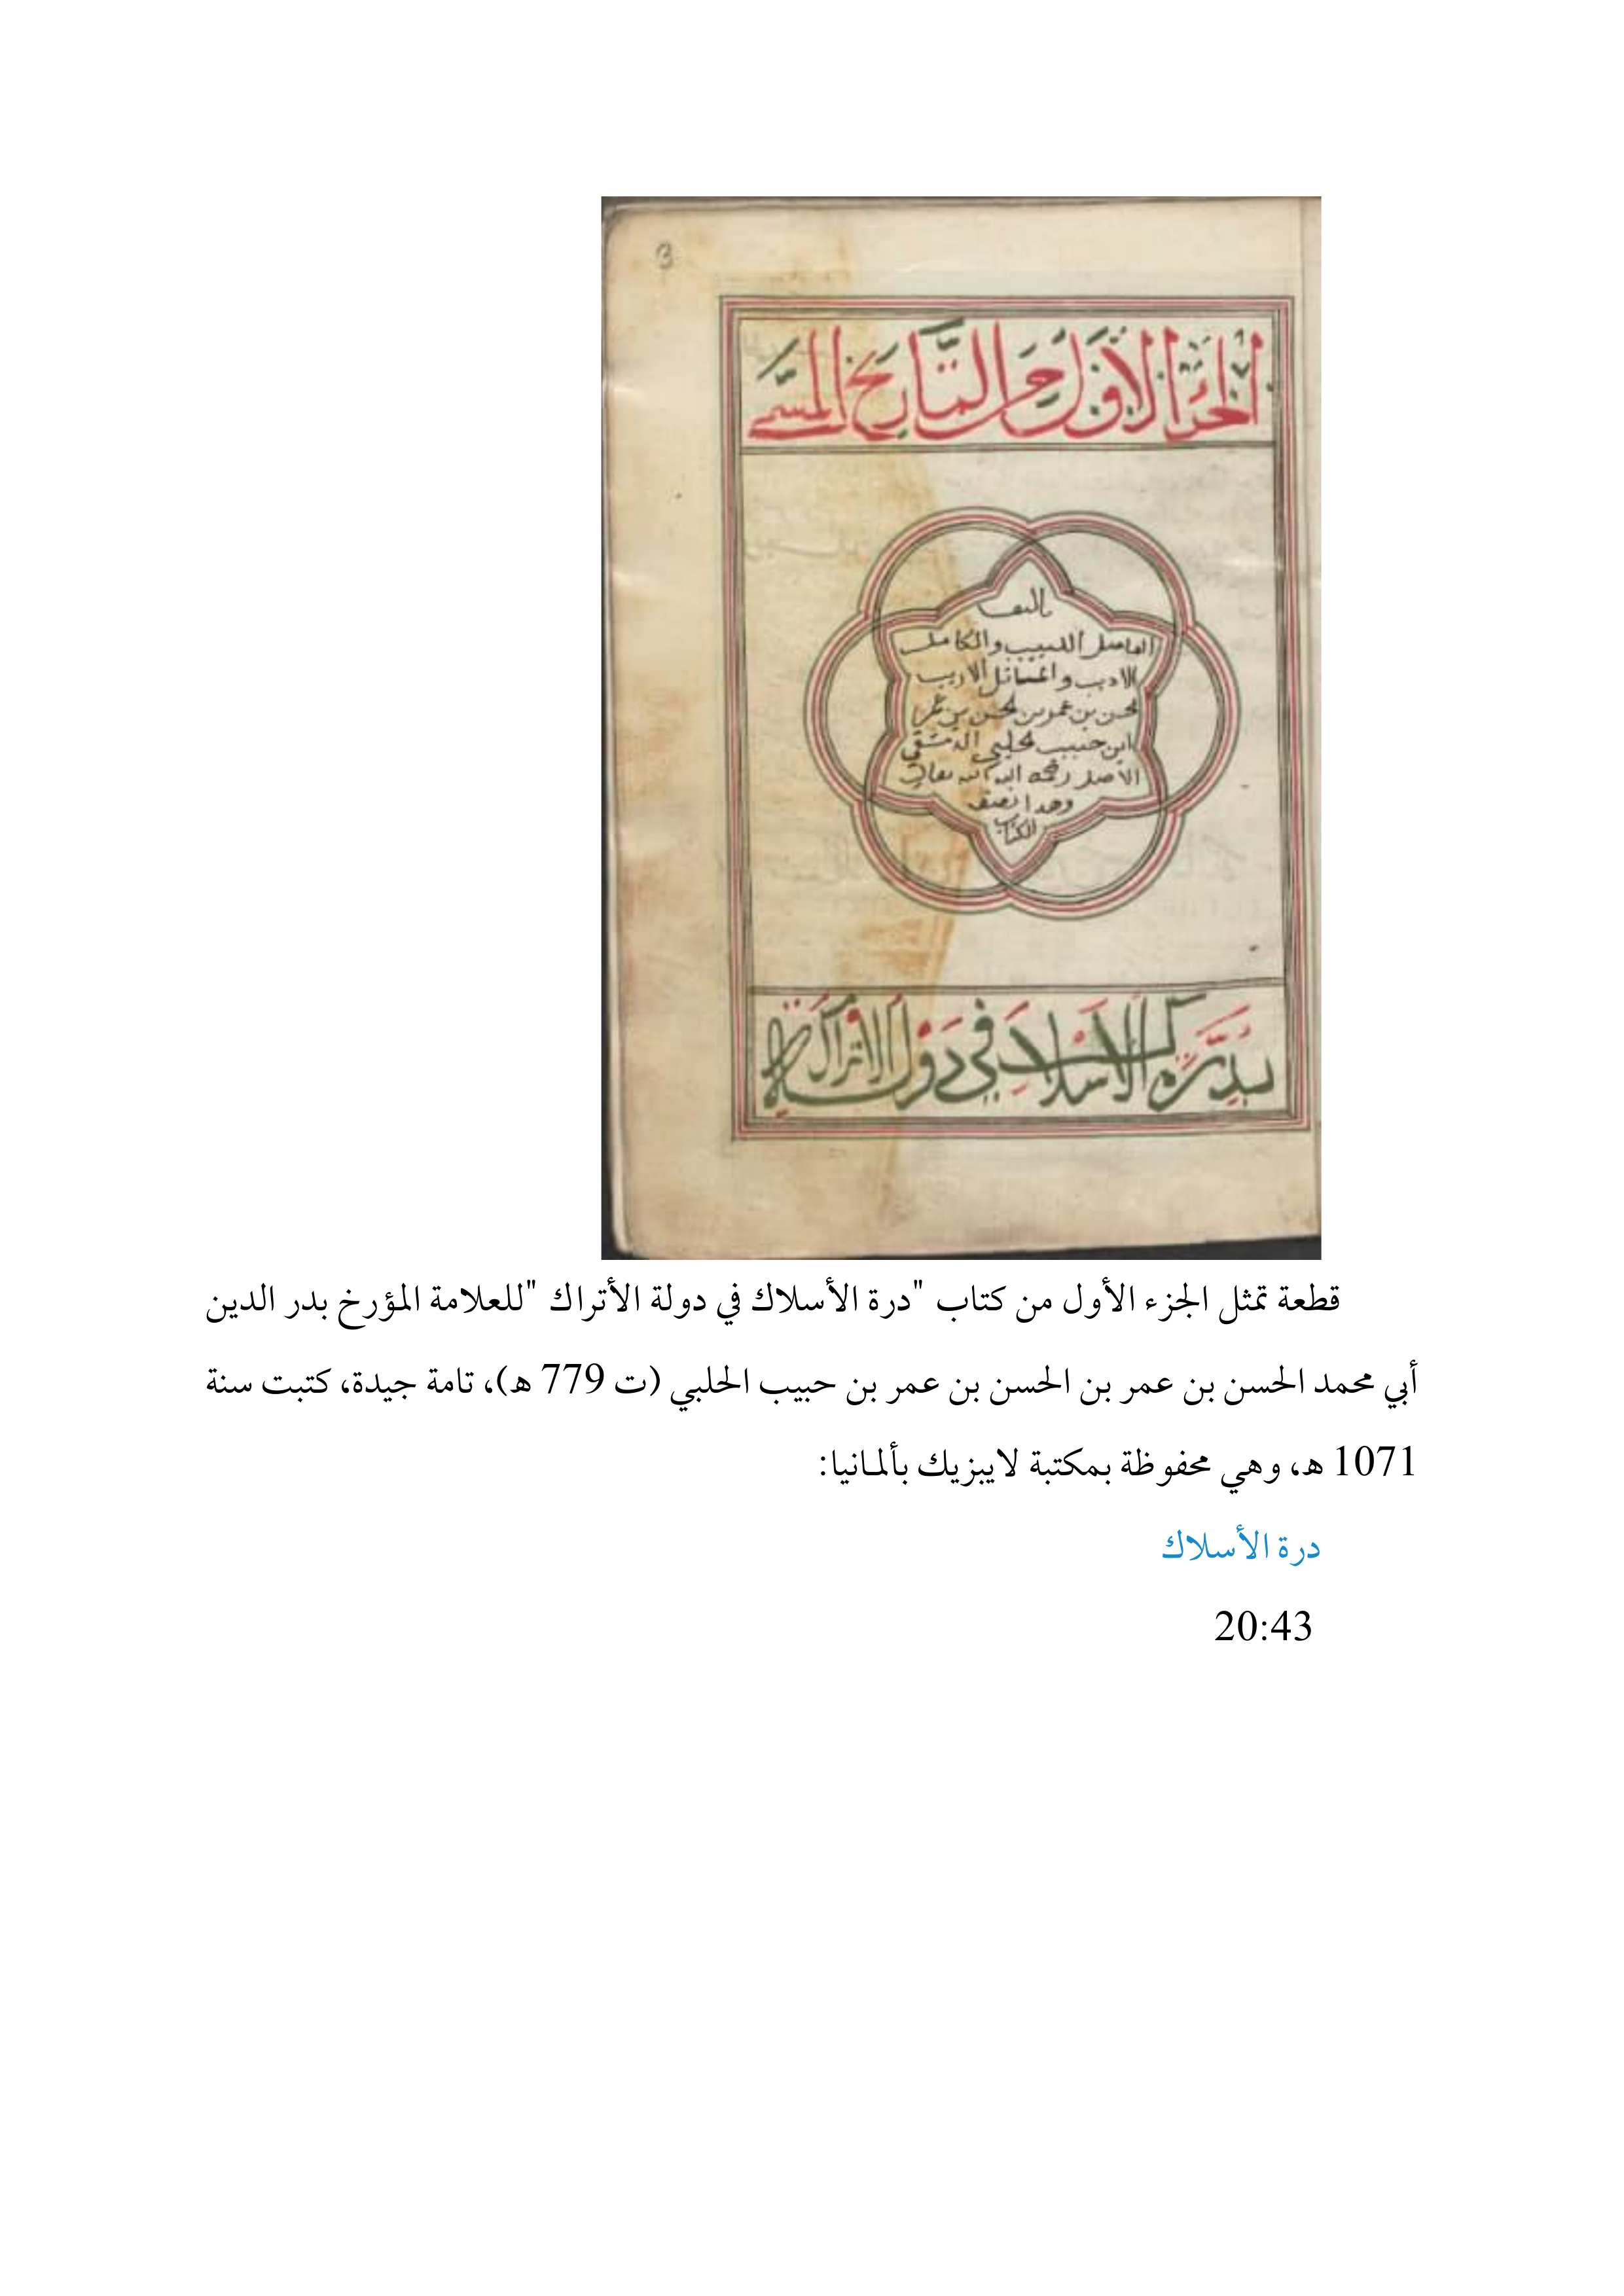 3
الجزء الاول من التاريخ المسمى
تاليف
الفاضل اللبيب والكامل
الاديب والفاضل الاريب
الحسن بن عمر بن الحسن بن عمر
ابن حبيب الحلبي الدمشقي
الاصل رحمه الله تعالى
وهذا نصف
الكتاب
بدرة الاسلاك في دولة الاتراك
قطعة تمثل الجزء الأول من كتاب "درة الأسلاك في دولة الأتراك "للعلامة المؤرخ بدر الدين
أبي محمد الحسن بن عمر بن الحسن بن عمر بن حبيب الحلبي (ت 779 ه)، تامة جيدة، كتبت سنة
1071 ه، وهي محفوظة بمكتبة لايبزيك بألمانيا:
درة الأسلاك
20:43